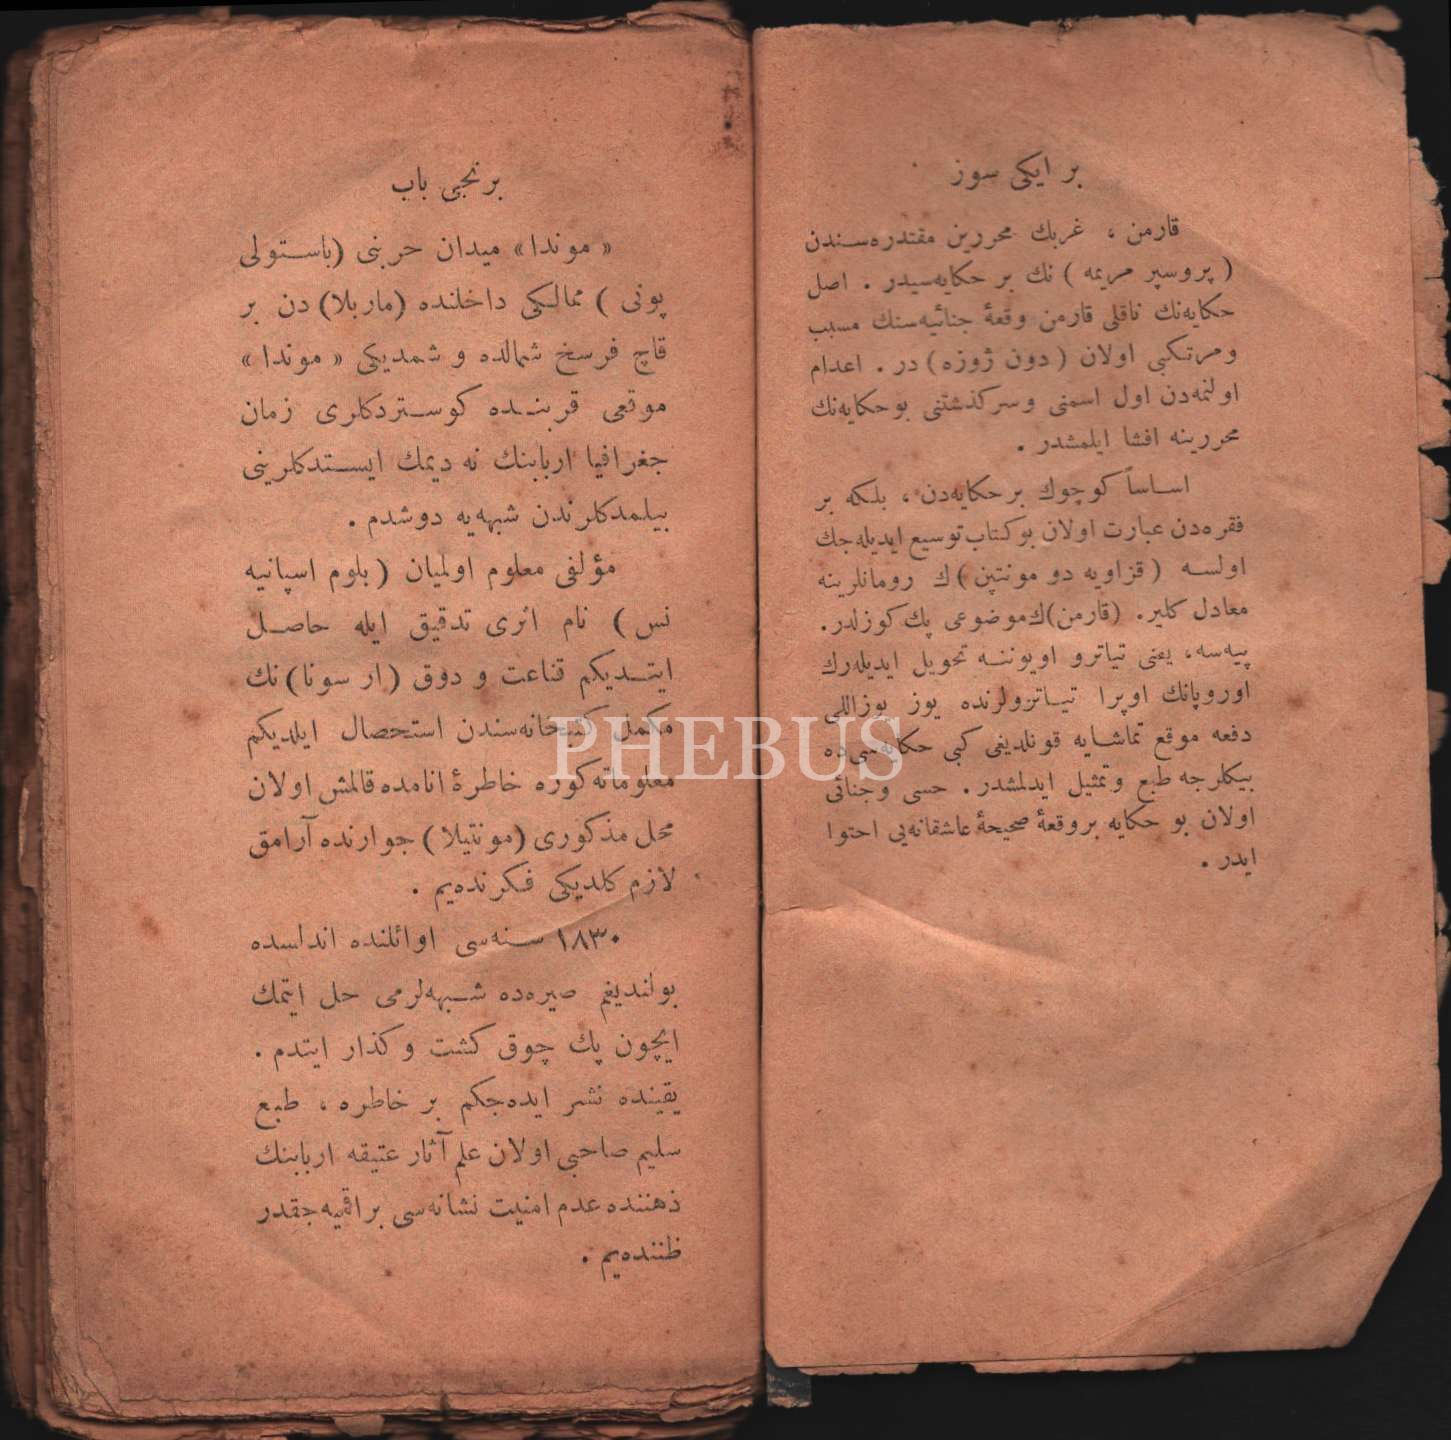 بر ایکی سوز
قارمن ، غربك محررین مقتدره‌سندن
( پروسپر مریمه ) نك بر حکایه‌سیدر . اصل
حکایه‌نك ناقلی قارمن وقعهٔ جنائیه‌سنك مسبب
ومرتکبی اولان ( دون ژوزه ) در . اعدام
اولنمه‌دن اول اسمنی وسرکذشتنی بو حکایه‌نك
محررینه افشا ایلمشدر .
اساساً کوچوك بر حکایه‌دن ، بلکه بر
فقره‌دن عبارت اولان بوکتاب توسیع ایدیله‌جك
اولسه ( قزاویه دو مونتپن ) ك رومانلرینه
معادل کلیر. (قارمن) ك موضوعی پك کوزلدر.
پیه‌سه، یعنی تیاترو اویوننه تحویل ایدیله‌رك
اوروپانك اوپرا تیاترولرنده یوز یوزاللی
دفعه موقع تماشایه قونلدیغی کبی حکایه‌سی ده
بیکلرجه طبع وتمثیل ایدلمشدر . حسی وجنائی
اولان بو حکایه بروقعهٔ صحیحهٔ عاشقانه‌یی احتوا
ایدر .
برنجی باب
« موندا » میدان حربنی (باستولی
پونی ) ممالکی داخلنده (ماربلا) دن بر
قاچ فرسخ شمالده و شمدیکی « موندا »
موقعی قربنده کوستردکلری زمان
جغرافیا اربابنك نه دیمك ایستدکلرینی
بیلمدکلرندن شبهه‌یه دوشدم .
مؤلفی معلوم اولمیان ( بلوم اسپانیه
نس ) نام اثری تدقیق ایله حاصل
ایتدیکم قناعت و دوق (ار سونا) نك
مکمل کتبخانه‌سندن استحصال ایلدیکم
معلوماته کوره خاطرهٔ انامده قالمش اولان
محل مذکوری (مونتیلا) جوارنده آرامق
لازم کلدیکی فکرنده‌یم .
۱۸۳۰ سنه‌سی اوائلنده اندلسده
بولندیغم صیره‌ده شبهه‌لرمی حل ایتمك
ایچون پك چوق کشت وکذار ایتدم .
یقینده نشر ایده‌جکم بر خاطره ، طبع
سلیم صاحبی اولان علم آثار عتیقه اربابنك
ذهننده عدم امنیت نشانه‌سی براقمیه‌جقدر
ظننده‌یم .
PHEBUS